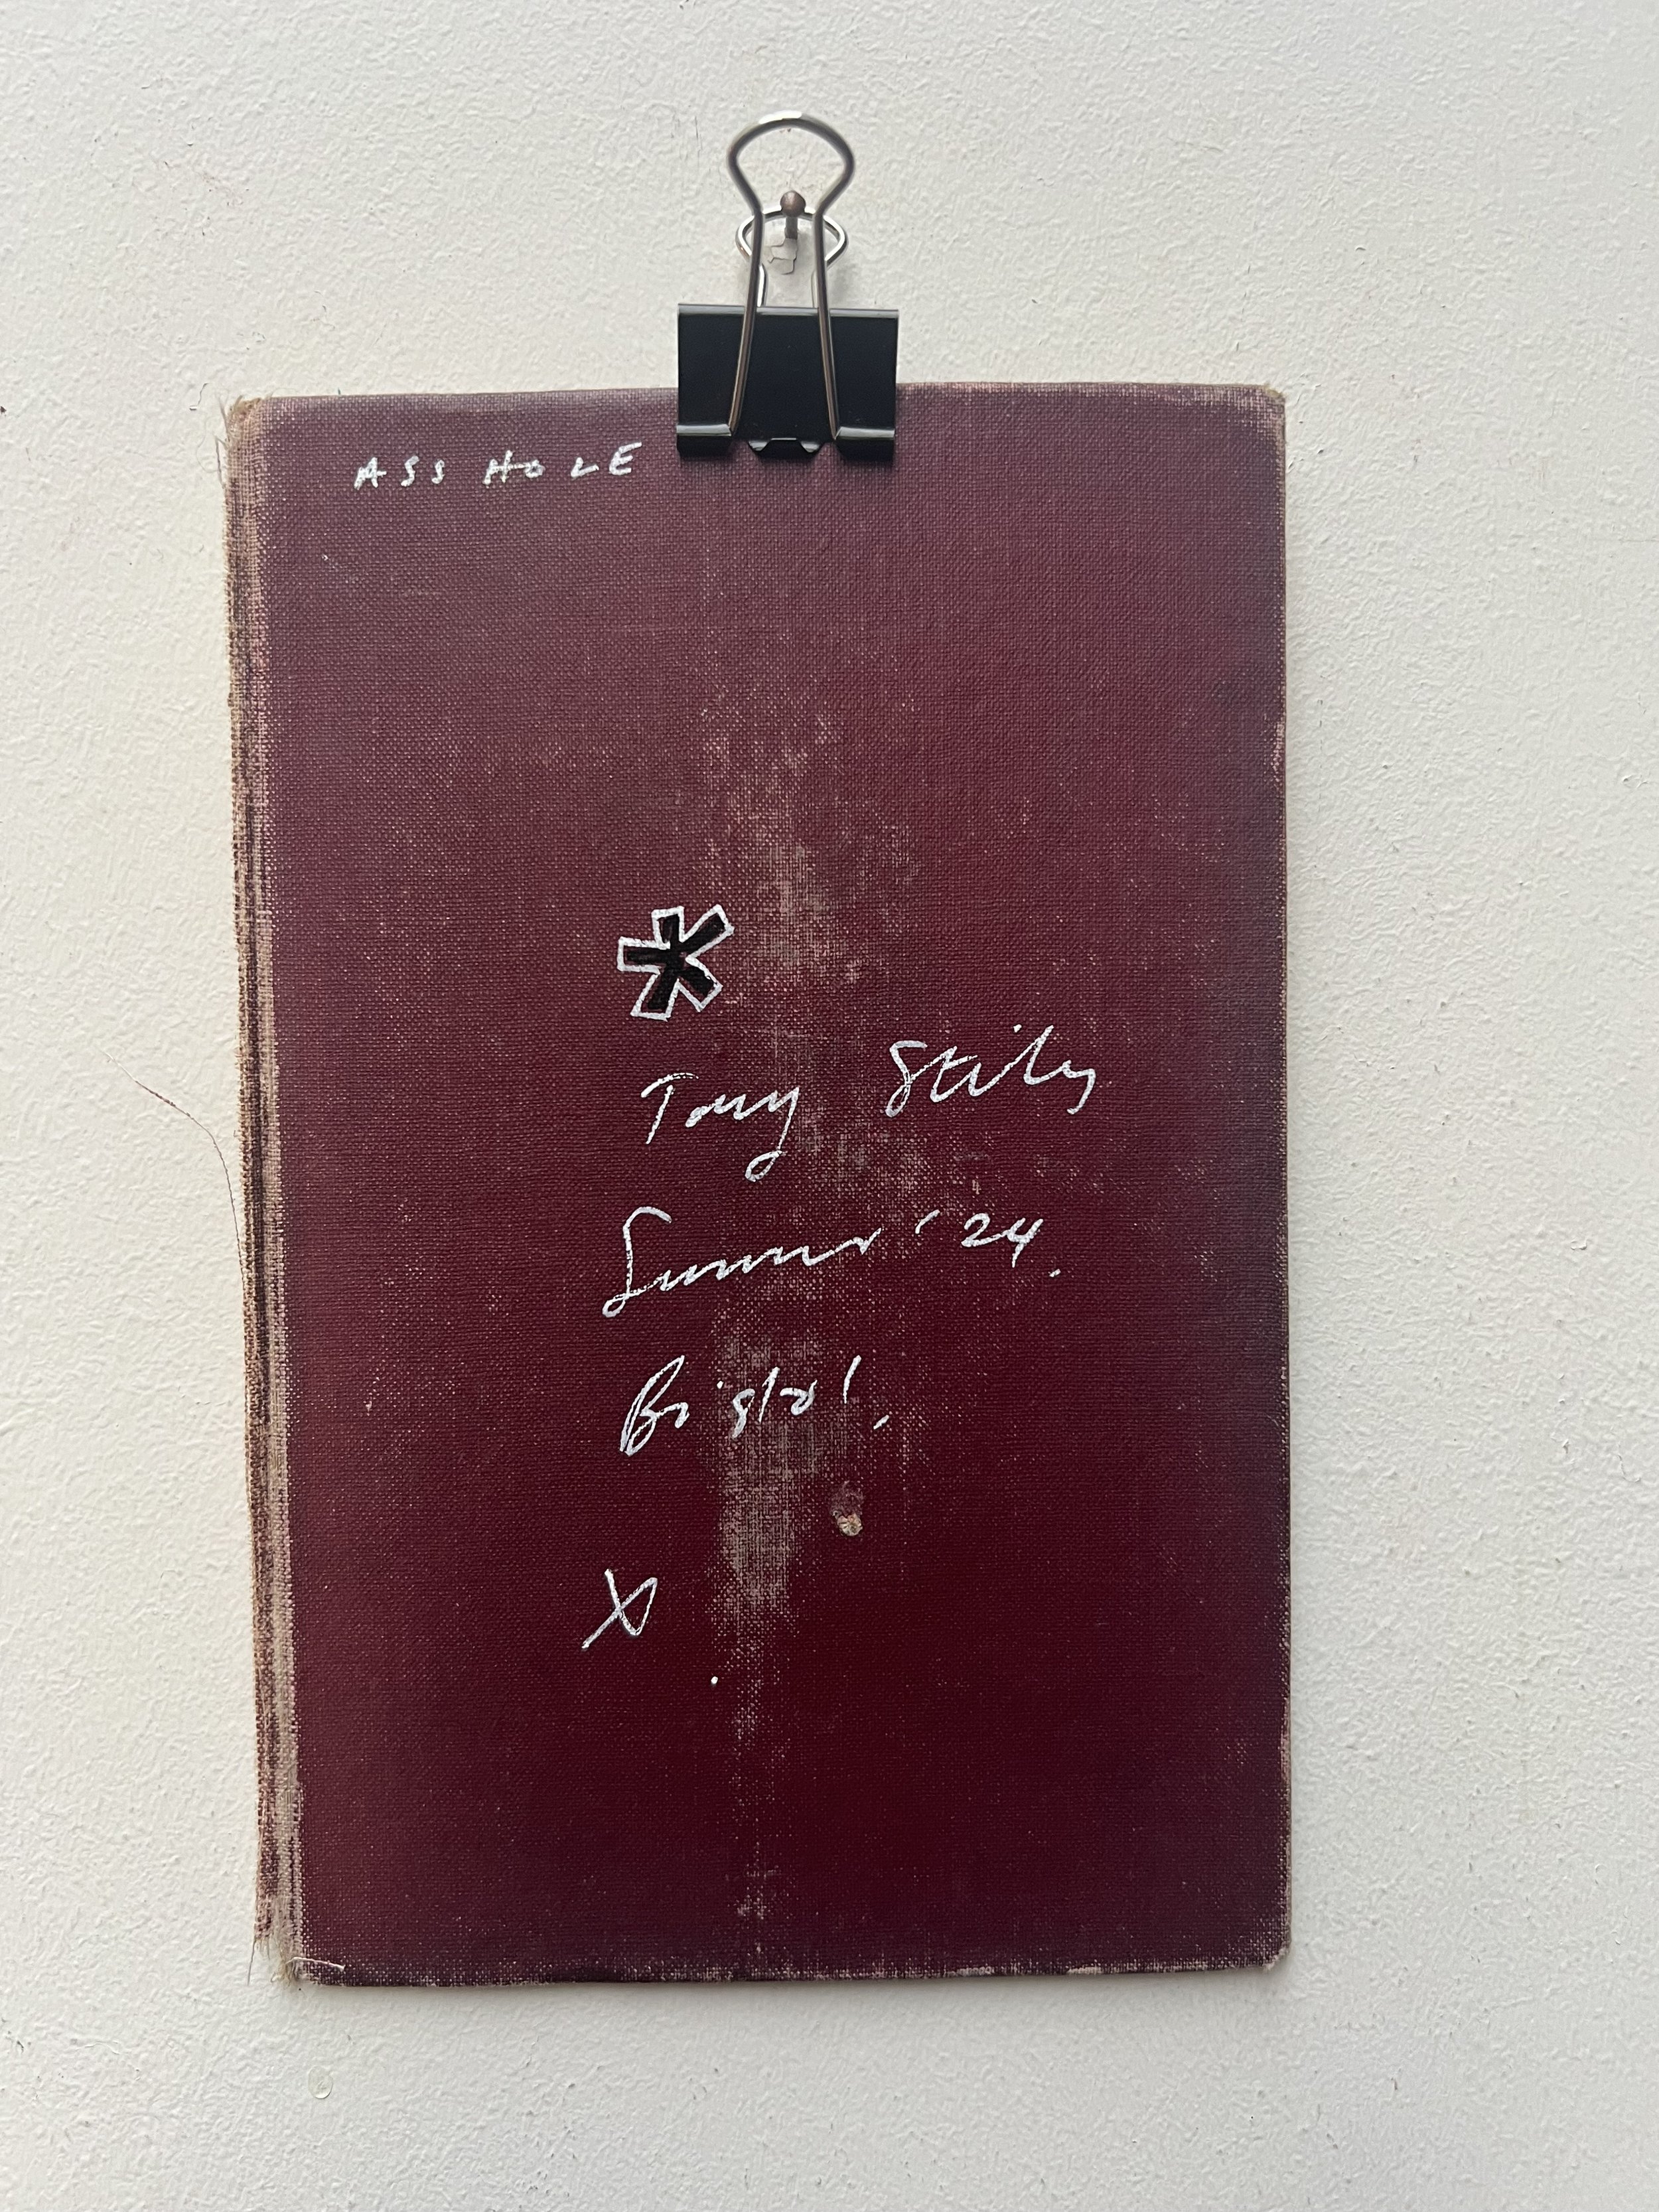 ASS HOLE
*
Tony Stiles
Summer '24.
Bristol.
X